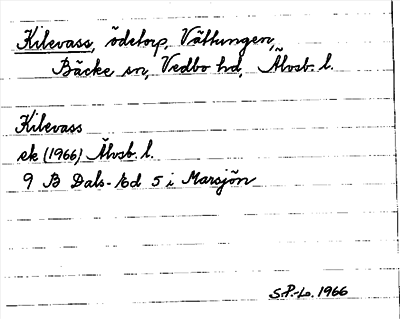 Kilevass, ödetorp, Vättungen,
Bäcke sn, Vedbo hd, Älvsb. l.
Kilevass
ek (1966) Älvsb. l.
9 B Dals-Ed 5 i Marsjön
S.P.-Lo. 1966